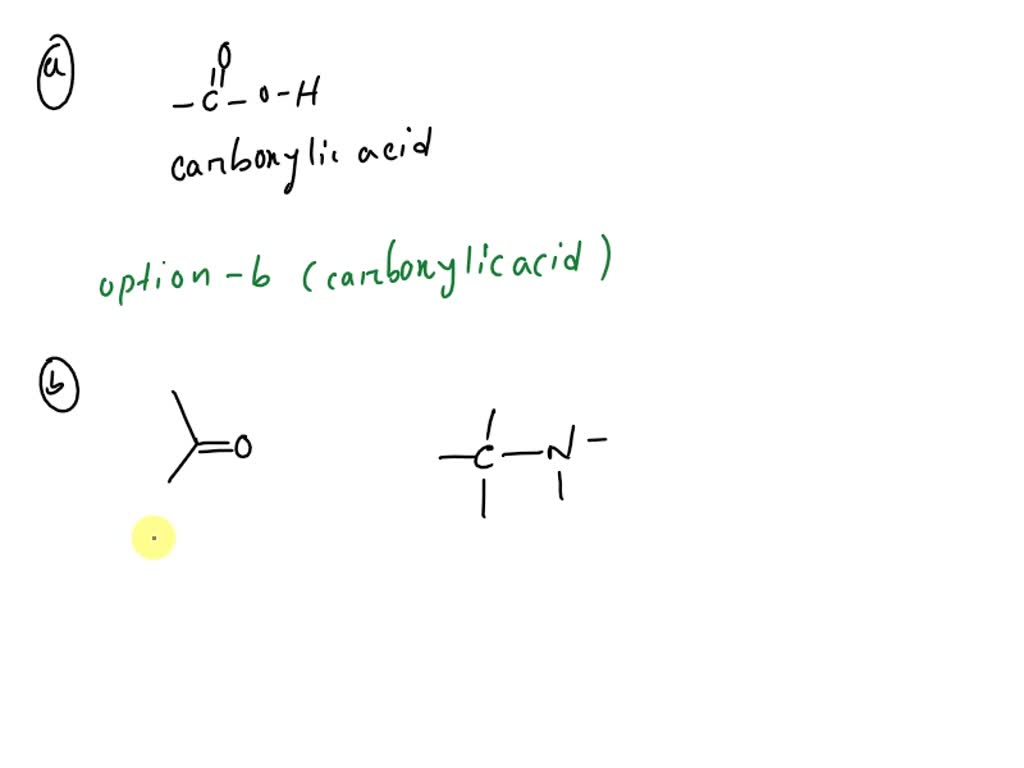 a
O
- C - O - H
carboxylic acid
option - b (carboxylic acid)
b
= O
- C - N -